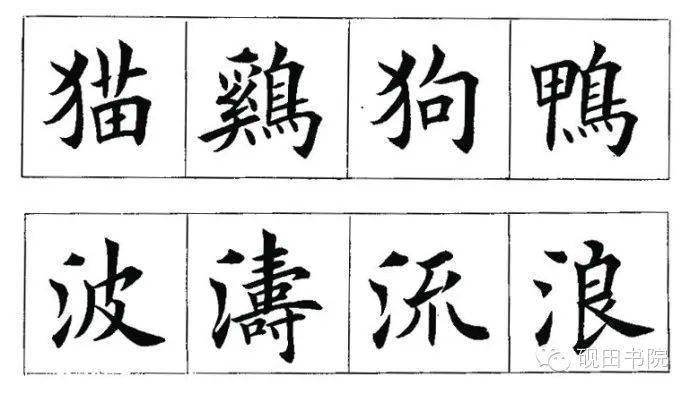 猫鷄狗鴨
波濤流浪
砚田书院